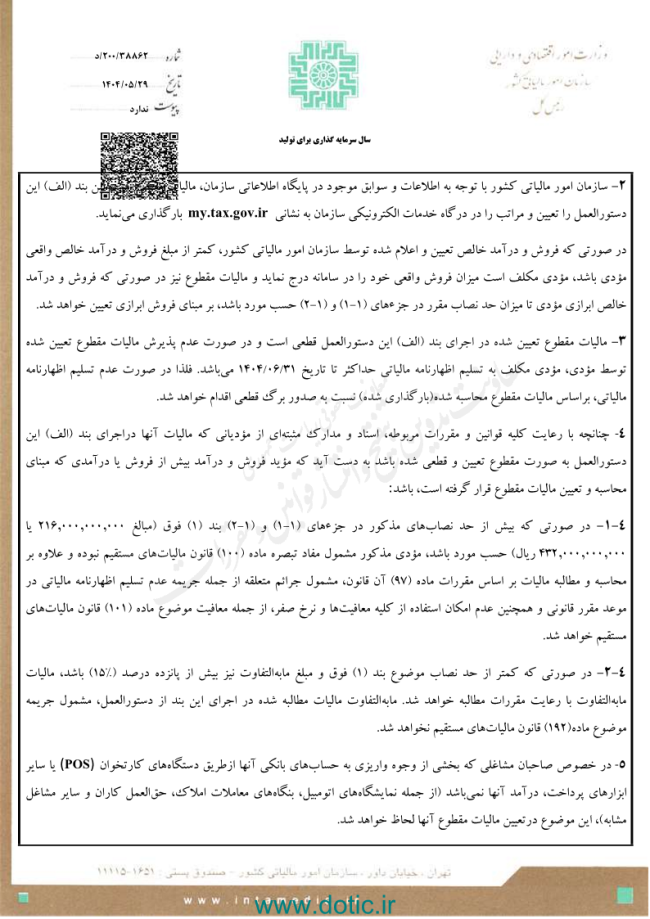 وزارت امور اقتصادی و دارایی
سازمان امور مالیاتی کشور
رئیس کل
شماره ۲۰۰/۳۸۸۶۲/د
تاریخ ۱۴۰۴/۰۵/۲۹
پیوست ندارد
سال سرمایه گذاری برای تولید
۲- سازمان امور مالیاتی کشور با توجه به اطلاعات و سوابق موجود در پایگاه اطلاعاتی سازمان، مالیات بند (الف) این
دستورالعمل را تعیین و مراتب را در درگاه خدمات الکترونیکی سازمان به نشانی my.tax.gov.ir بارگذاری می‌نماید.
در صورتی که فروش و درآمد خالص تعیین و اعلام شده توسط سازمان امور مالیاتی کشور، کمتر از مبلغ فروش و درآمد خالص واقعی
مؤدی باشد، مؤدی مکلف است میزان فروش واقعی خود را در سامانه درج نماید و مالیات مقطوع نیز در صورتی که فروش و درآمد
خالص ابرازی مؤدی تا میزان حد نصاب مقرر در جزءهای (۱-۱) و (۲-۱) حسب مورد باشد، بر مبنای فروش ابرازی تعیین خواهد شد.
۳- مالیات مقطوع تعیین شده در اجرای بند (الف) این دستورالعمل قطعی است و در صورت عدم پذیرش مالیات مقطوع تعیین شده
توسط مؤدی، مؤدی مکلف به تسلیم اظهارنامه مالیاتی حداکثر تا تاریخ ۱۴۰۴/۰۶/۳۱ می‌باشد. فلذا در صورت عدم تسلیم اظهارنامه
مالیاتی، براساس مالیات مقطوع محاسبه شده(بارگذاری شده) نسبت به صدور برگ قطعی اقدام خواهد شد.
٤- چنانچه با رعایت کلیه قوانین و مقررات مربوطه، اسناد و مدارک مثبته‌ای از مؤدیانی که مالیات آنها دراجرای بند (الف) این
دستورالعمل به صورت مقطوع تعیین و قطعی شده باشد به دست آید که مؤید فروش و درآمد بیش از فروش یا درآمدی که مبنای
محاسبه و تعیین مالیات مقطوع قرار گرفته است، باشد:
٤-۱- در صورتی که بیش از حد نصاب‌های مذکور در جزءهای (۱-۱) و (۲-۱) بند (۱) فوق (مبالغ ۲۱۶,۰۰۰,۰۰۰,۰۰۰ یا
۴۳۲,۰۰۰,۰۰۰,۰۰۰ ریال) حسب مورد باشد، مؤدی مذکور مشمول مفاد تبصره ماده (۱۰۰) قانون مالیات‌های مستقیم نبوده و علاوه بر
محاسبه و مطالبه مالیات بر اساس مقررات ماده (۹۷) آن قانون، مشمول جرائم متعلقه از جمله جریمه عدم تسلیم اظهارنامه مالیاتی در
موعد مقرر قانونی و همچنین عدم امکان استفاده از کلیه معافیت‌ها و نرخ صفر، از جمله معافیت موضوع ماده (۱۰۱) قانون مالیات‌های
مستقیم خواهد شد.
٤-۲- در صورتی که کمتر از حد نصاب موضوع بند (۱) فوق و مبلغ مابه‌التفاوت نیز بیش از پانزده درصد (۱۵٪) باشد، مالیات
مابه‌التفاوت با رعایت مقررات مطالبه خواهد شد. مابه‌التفاوت مالیات مطالبه شده در اجرای این بند از دستورالعمل، مشمول جریمه
موضوع ماده(۱۹۲) قانون مالیات‌های مستقیم نخواهد شد.
۵- در خصوص صاحبان مشاغلی که بخشی از وجوه واریزی به حساب‌های بانکی آنها ازطریق دستگاه‌های کارتخوان (POS) یا سایر
ابزارهای پرداخت، درآمد آنها نمی‌باشد (از جمله نمایشگاه‌های اتومبیل، بنگاه‌های معاملات املاک، حق‌العمل کاران و سایر مشاغل
مشابه)، این موضوع درتعیین مالیات مقطوع آنها لحاظ خواهد شد.
تهران ، خیابان داور ، سازمان امور مالیاتی کشور - صندوق پستی : ۱۶۵۱-۱۱۱۱۵
www.dotic.ir